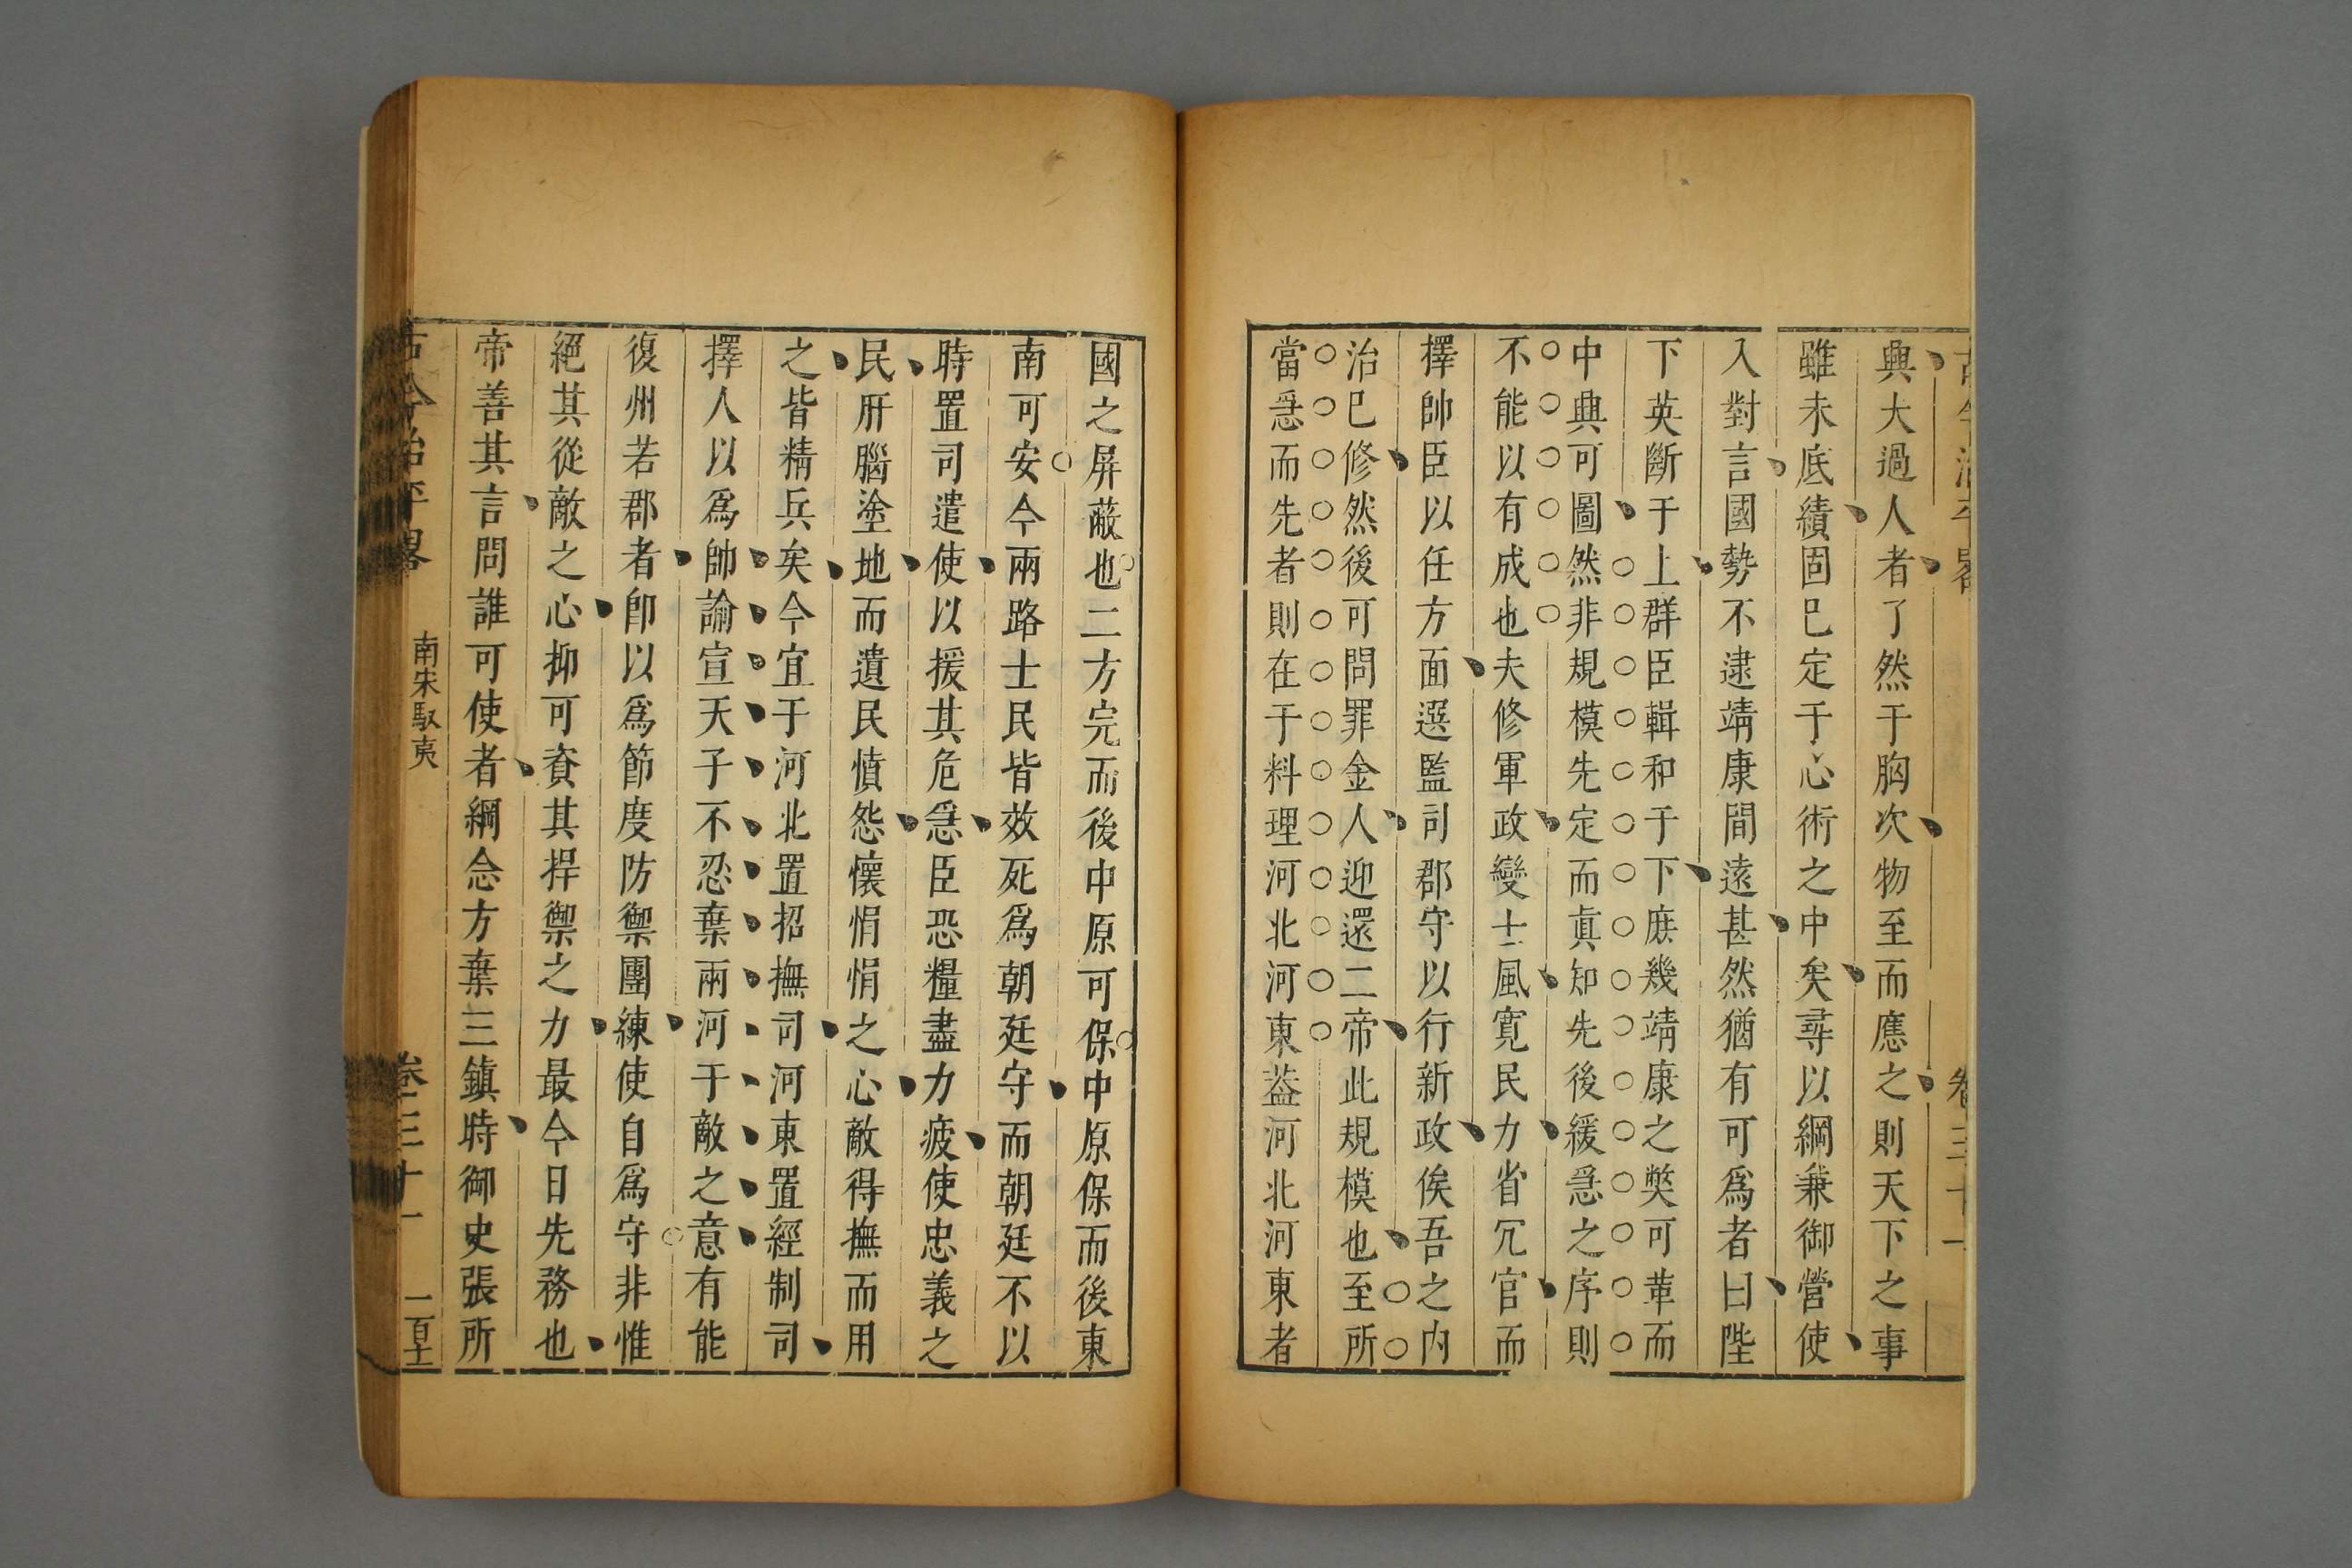 古今治平畧
卷三十一
興大過人者了然于胸次物至而應之則天下之事
雖未底績固已定于心術之中矣尋以綱兼御營使
入對言國勢不逮靖康間遠甚然猶有可爲者曰陛
下英斷于上群臣輯和于下庶幾靖康之獘可革而
中興可圖然非規模先定而眞知先後緩急之序則
不能以有成也夫修軍政變士風寛民力省冗官而
擇帥臣以任方面選監司郡守以行新政俟吾之内
治已修然後可問罪金人迎還二帝此規模也至所
當急而先者則在于料理河北河東葢河北河東者
國之屏蔽也二方完而後中原可保中原保而後東
南可安今兩路士民皆效死爲朝廷守而朝廷不以
時置司遣使以援其危急臣恐糧盡力疲使忠義之
民肝腦塗地而遺民憤怨懷悁悁之心敵得撫而用
之皆精兵矣今宜于河北置招撫司河東置經制司
擇人以爲帥諭宣天子不忍棄兩河于敵之意有能
復州若郡者卽以爲節度防禦團練使自爲守非惟
絕其從敵之心抑可資其捍禦之力最今日先務也
帝善其言問誰可使者綱念方棄三鎮時御史張所
古今治平畧
南宋馭夷
卷三十一
一百十一